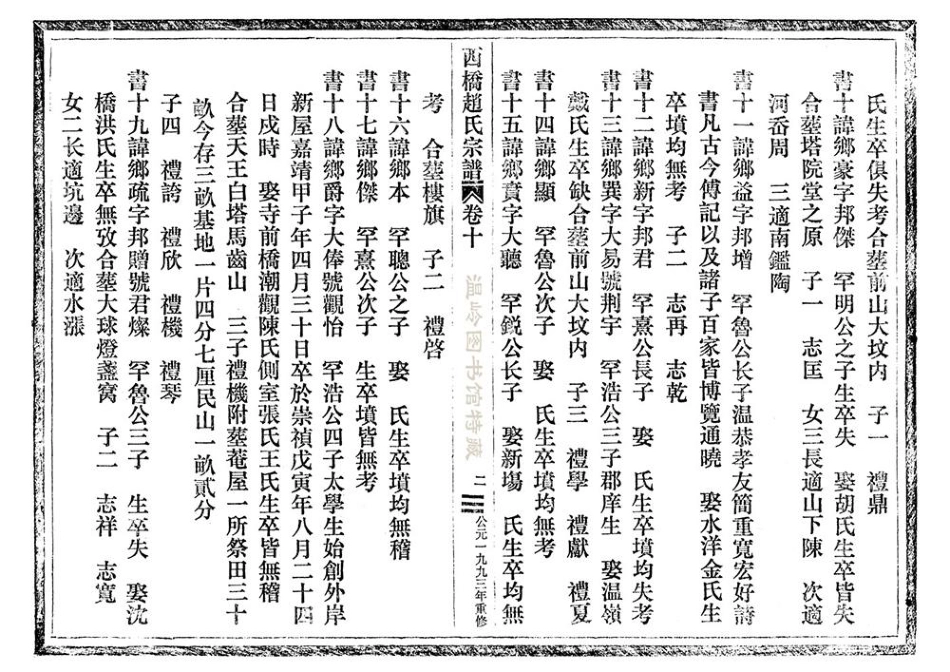 氏生卒俱失考合墓前山大坟内　子一　禮鼎
書十諱鄉豪字邦傑　罕明公之子生卒失　娶胡氏生卒皆失
合墓塔院堂之原　子一　志匡　女三長適山下陳　次適
河岙周　三適南鑑陶
書十一諱鄉益字邦增　罕魯公长子温恭孝友簡重寬宏好詩
書凡古今傳記以及諸子百家皆博覽通曉　娶水洋金氏生
卒墳均無考　子二　志再　志乾
書十二諱鄉新字邦君　罕熹公長子　娶　氏生卒墳均失考
書十三諱鄉巽字大易號荆宇　罕浩公三子郡庠生　娶温嶺
戴氏生卒缺合墓前山大坟内　子三　禮學　禮獻　禮夏
書十四諱鄉顯　罕魯公次子　娶　氏生卒墳均無考
書十五諱鄉賁字大聽　罕銳公长子　娶新塲　氏生卒均無
西橋趙氏宗譜　卷十　二　公元一九九三年重修
温岭图书馆特藏
考　合墓樓旗　子二　禮啓
書十六諱鄉本　罕聰公之子　娶　氏生卒墳均無稽
書十七諱鄉傑　罕熹公次子　生卒墳皆無考
書十八諱鄉爵字大俸號觀怡　罕浩公四子太學生始創外岸
新屋嘉靖甲子年四月三十日卒於崇禎戊寅年八月二十四
日戌時　娶寺前橋潮觀陳氏側室張氏王氏生卒皆無稽
合墓天王白塔馬齒山　三子禮機附墓菴屋一所祭田三十
畝今存三畝基地一片四分七厘民山一畝貳分
子四　禮誇　禮欣　禮機　禮琴
書十九諱鄉疏字邦贈號君燦　罕魯公三子　生卒失　娶沈
橋洪氏生卒無攷合墓大球燈盞窩　子二　志祥　志寬
女二长適坑邊　次適水漲